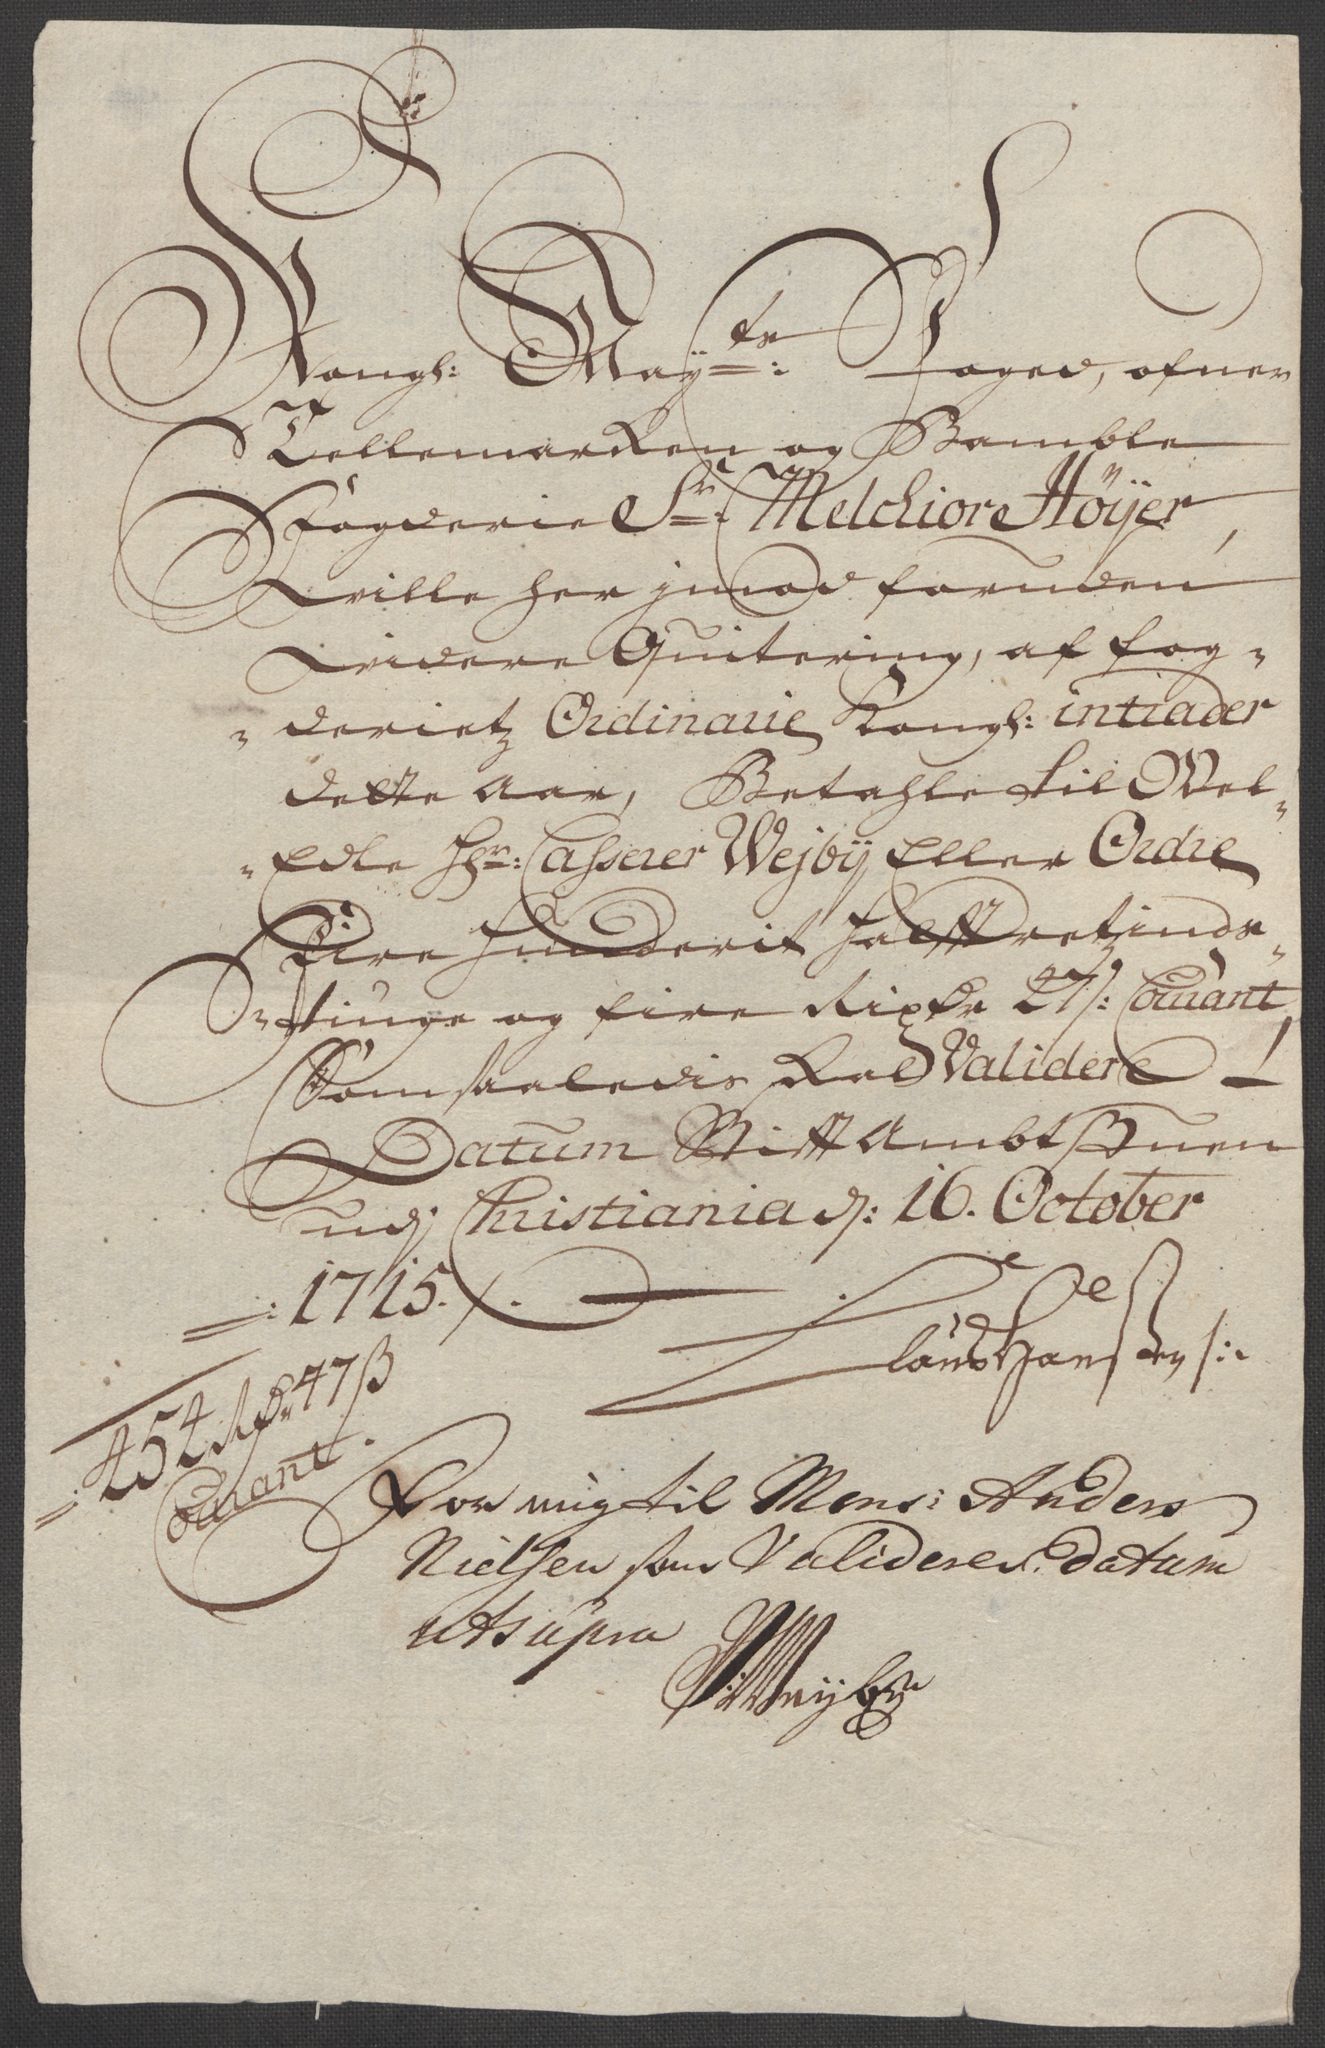 Kongl: May:ts Foged, ofver
Tellemarken og Bamble
Fogderie Sr: Melchior Höÿer,
ville her jmod foruden
videre Quitering, af fog-
-derietz Ordinarie Kongl: intrader
dette Aar, Betahle til Wel-
-Edle Hr: Casserer Wejbÿ Eller Ordre
Fire Hunderit Halfftretzinds-
-tiuge og fire Rixdr 47 s: Courant,
Som saaledis skal Validere
Datum Stifft Ambt Stuen
udj Christiania d: 16. October
1715.
Claus Hansen
454 Rdr 47 ß
Courant.
For mig til Mons: Anders
Nielsen som Validerer. datum
ut supra
Weybye